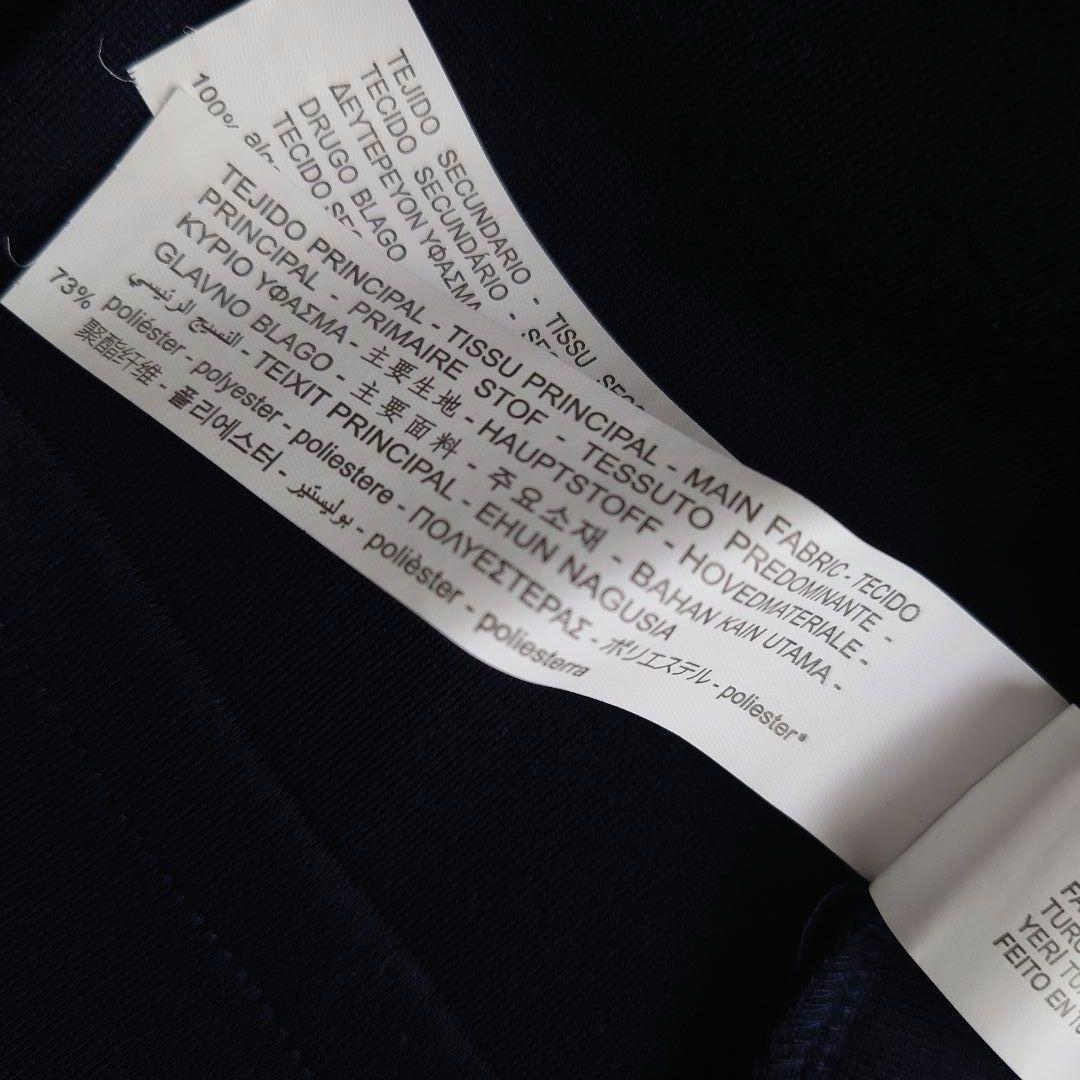 TEJIDO SECUNDARIO - TISSU
TECIDO SECUNDÁRIO -
ΔΕΥΤΕΡΕΥΟΝ ΥΦΑΣΜΑ
DRUGO BLAGO
TECIDO
100%
TEJIDO PRINCIPAL - TISSU PRINCIPAL - MAIN FABRIC - TECIDO
PRINCIPAL - PRIMAIRE STOF - TESSUTO PREDOMINANTE -
ΚΥΡΙΟ ΥΦΑΣΜΑ - 主要生地 - HAUPTSTOFF - HOVEDMATERIALE -
GLAVNO BLAGO - 主要面料 - 주요소재 - BAHAN KAIN UTAMA -
النسيج الرئيسي - TEIXIT PRINCIPAL - EHUN NAGUSIA
73% poliéster - polyester - poliestere - ΠΟΛΥΕΣΤΕΡΑΣ - ポリエステル - poliester*
聚酯纤维 - 폴리에스터 - بوليستير - polièster - poliesterra
YERI
FEITO EN